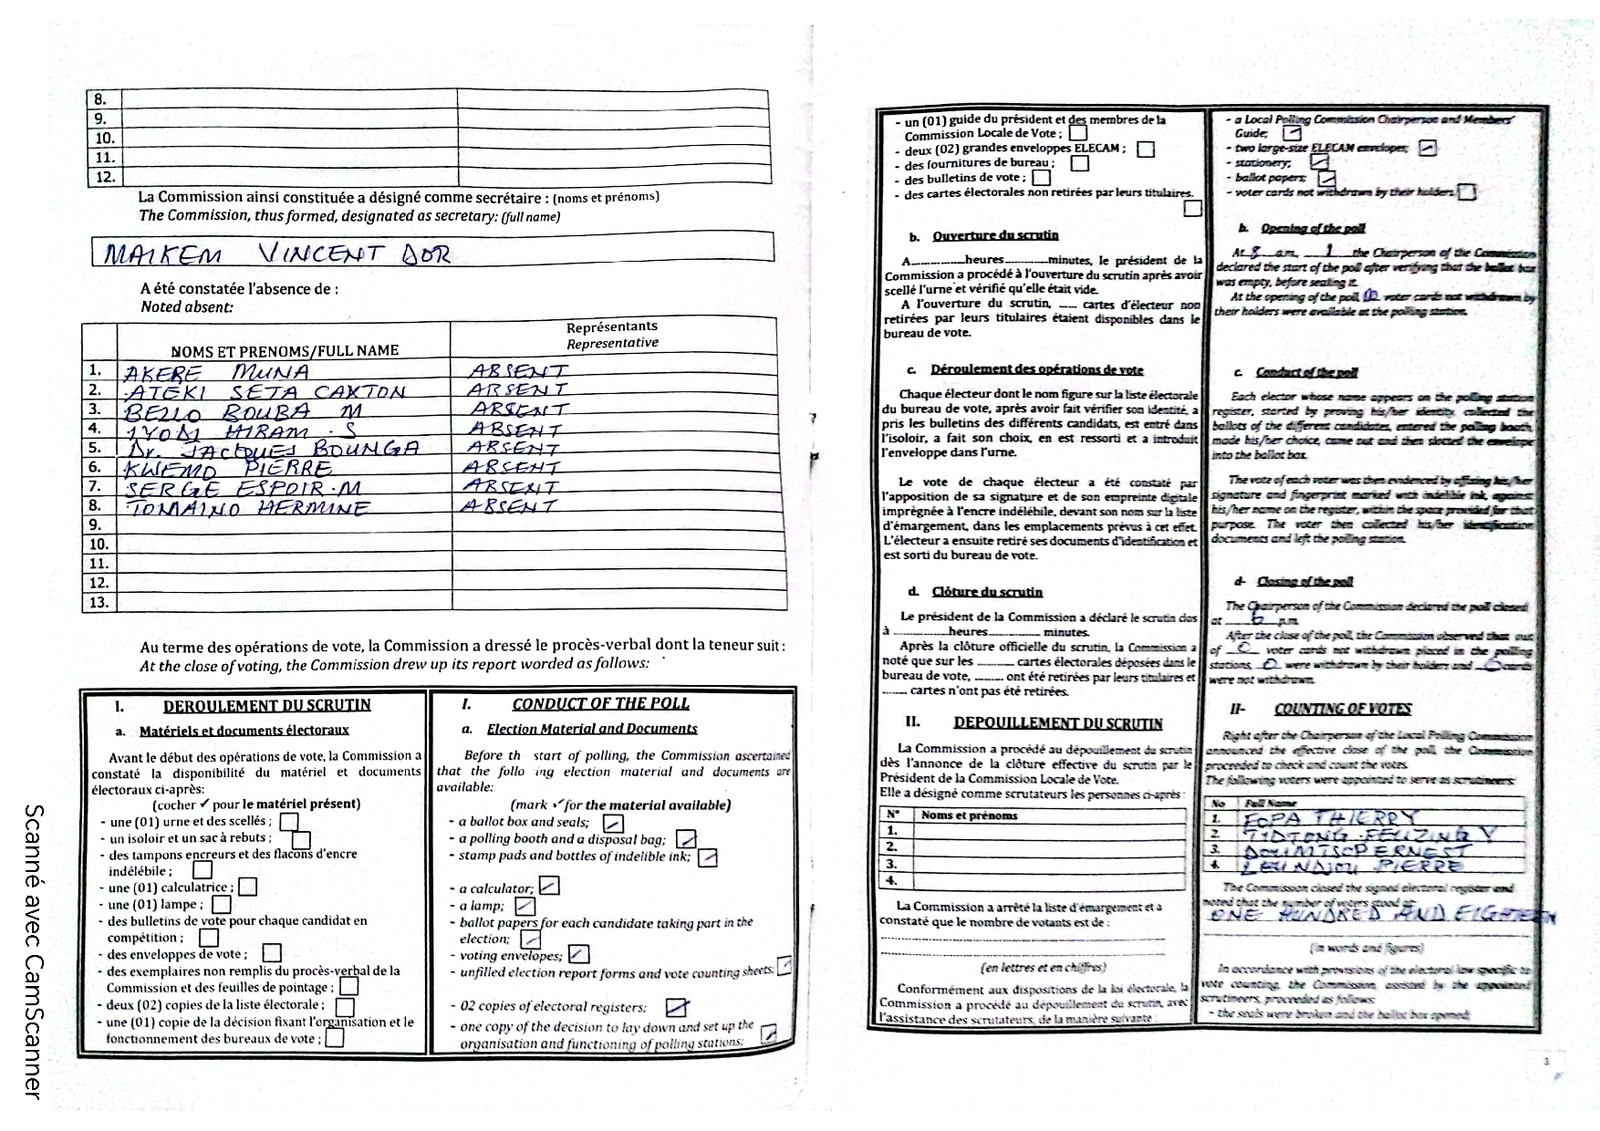 8.
9.
10.
11.
12.
La Commission ainsi constituée a désigné comme secrétaire : (noms et prénoms)
The Commission, thus formed, designated as secretary: (full name)
MAIKEM VINCENT DOR
A été constatée l'absence de :
Noted absent:
NOMS ET PRENOMS/FULL NAME
Représentants
Representative
1. AKERE MUNA ABSENT
2. ATEKI SETA CAXTON ABSENT
3. BELLO BOUBA M ABSENT
4. IYODI HIRAM .S ABSENT
5. Dr. JACQUES BOUNGA ABSENT
6. KWEMO PIERRE ABSENT
7. SERGE ESPOIR.M ABSENT
8. TOMAINO HERMINE ABSENT
9.
10.
11.
12.
13.
Au terme des opérations de vote, la Commission a dressé le procès-verbal dont la teneur suit :
At the close of voting, the Commission drew up its report worded as follows:
I. DEROULEMENT DU SCRUTIN
a. Matériels et documents électoraux
Avant le début des opérations de vote, la Commission a
constaté la disponibilité du matériel et documents
électoraux ci-après:
(cocher ✓ pour le matériel présent)
- une (01) urne et des scellés ;
- un isoloir et un sac à rebuts ;
- des tampons encreurs et des flacons d'encre
indélébile ;
- une (01) calculatrice ;
- une (01) lampe ;
- des bulletins de vote pour chaque candidat en
compétition ;
- des enveloppes de vote ;
- des exemplaires non remplis du procès-verbal de la
Commission et des feuilles de pointage ;
- deux (02) copies de la liste électorale ;
- une (01) copie de la décision fixant l'organisation et le
fonctionnement des bureaux de vote ;
I. CONDUCT OF THE POLL
a. Election Material and Documents
Before th start of polling, the Commission ascertained
that the follo ing election material and documents are
available:
(mark ✓ for the material available)
- a ballot box and seals;
- a polling booth and a disposal bag;
- stamp pads and bottles of indelible ink;
- a calculator;
- a lamp;
- ballot papers for each candidate taking part in the
election;
- voting envelopes;
- unfilled election report forms and vote counting sheets.
- 02 copies of electoral registers;
- one copy of the decision to lay down and set up the
organisation and functioning of polling stations;
Scanné avec CamScanner
- un (01) guide du président et des membres de la
Commission Locale de Vote ;
- deux (02) grandes enveloppes ELECAM ;
- des fournitures de bureau ;
- des bulletins de vote ;
- des cartes électorales non retirées par leurs titulaires.
b. Ouverture du scrutin
A..............heures..............minutes, le président de la
Commission a procédé à l'ouverture du scrutin après avoir
scellé l'urne et vérifié qu'elle était vide.
A l'ouverture du scrutin, ..... cartes d'électeur non
retirées par leurs titulaires étaient disponibles dans le
bureau de vote.
c. Déroulement des opérations de vote
Chaque électeur dont le nom figure sur la liste électorale
du bureau de vote, après avoir fait vérifier son identité, a
pris les bulletins des différents candidats, est entré dans
l'isoloir, a fait son choix, en est ressorti et a introduit
l'enveloppe dans l'urne.
Le vote de chaque électeur a été constaté par
l'apposition de sa signature et de son empreinte digitale
imprègnée à l'encre indélébile, devant son nom sur la liste
d'émargement, dans les emplacements prévus à cet effet.
L'électeur a ensuite retiré ses documents d'identification et
est sorti du bureau de vote.
d. Clôture du scrutin
Le président de la Commission a déclaré le scrutin clos
à ..............heures............ minutes.
Après la clôture officielle du scrutin, la Commission a
noté que sur les ......... cartes électorales déposées dans le
bureau de vote, ........ ont été retirées par leurs titulaires et
....... cartes n'ont pas été retirées.
II. DEPOUILLEMENT DU SCRUTIN
La Commission a procédé au dépouillement du scrutin
dès l'annonce de la clôture effective du scrutin par le
Président de la Commission Locale de Vote.
Elle a désigné comme scrutateurs les personnes ci-après :
N° Noms et prénoms
1.
2.
3.
4.
La Commission a arrêté la liste d'émargement et a
constaté que le nombre de votants est de :
(en lettres et en chiffres)
Conformément aux dispositions de la loi électorale, la
Commission a procédé au dépouillement du scrutin, avec
l'assistance des scrutateurs, de la manière suivante :
- a Local Polling Commission Chairperson and Members'
Guide;
- two large-size ELECAM envelopes;
- stationery;
- ballot papers;
- voter cards not withdrawn by their holders
b. Opening of the poll
At 8 a.m, the Chairperson of the Commission
declared the start of the poll after verifying that the ballot box
was empty, before sealing it.
At the opening of the poll, voter cards not withdrawn by
their holders were available at the polling station.
c. Conduct of the poll
Each elector whose name appears on the polling station
register, started by proving his/her identity, collected the
ballots of the different candidates, entered the polling booth,
made his/her choice, came out and then slotted the envelope
into the ballot box.
The vote of each voter was then evidenced by affixing his/her
signature and fingerprint marked with indelible ink, against
his/her name on the register, within the space provided for that
purpose. The voter then collected his/her identification
documents and left the polling station.
d- Closing of the poll
The Chairperson of the Commission declared the poll closed
at 6 p.m.
After the close of the poll, the Commission observed that out
of 0 voter cards not withdrawn placed in the polling
stations, 0 were withdrawn by their holders and 0 cards
were not withdrawn.
II- COUNTING OF VOTES
Right after the Chairperson of the Local Polling Commission
announced the effective close of the poll, the Commission
proceeded to check and count the votes.
The following voters were appointed to serve as scrutineers:
No Full Name
1. FOPA THIERRY
2.
3.
4. PIERRE
The Commission closed the signed electoral register and
noted that the number of voters stood at
ONE HUNDRED AND EIGHTEEN
(in words and figures)
In accordance with provisions of the electoral law specific to
vote counting, the Commission, assisted by the appointed
scrutineers, proceeded as follows:
- the seals were broken and the ballot box opened;
3